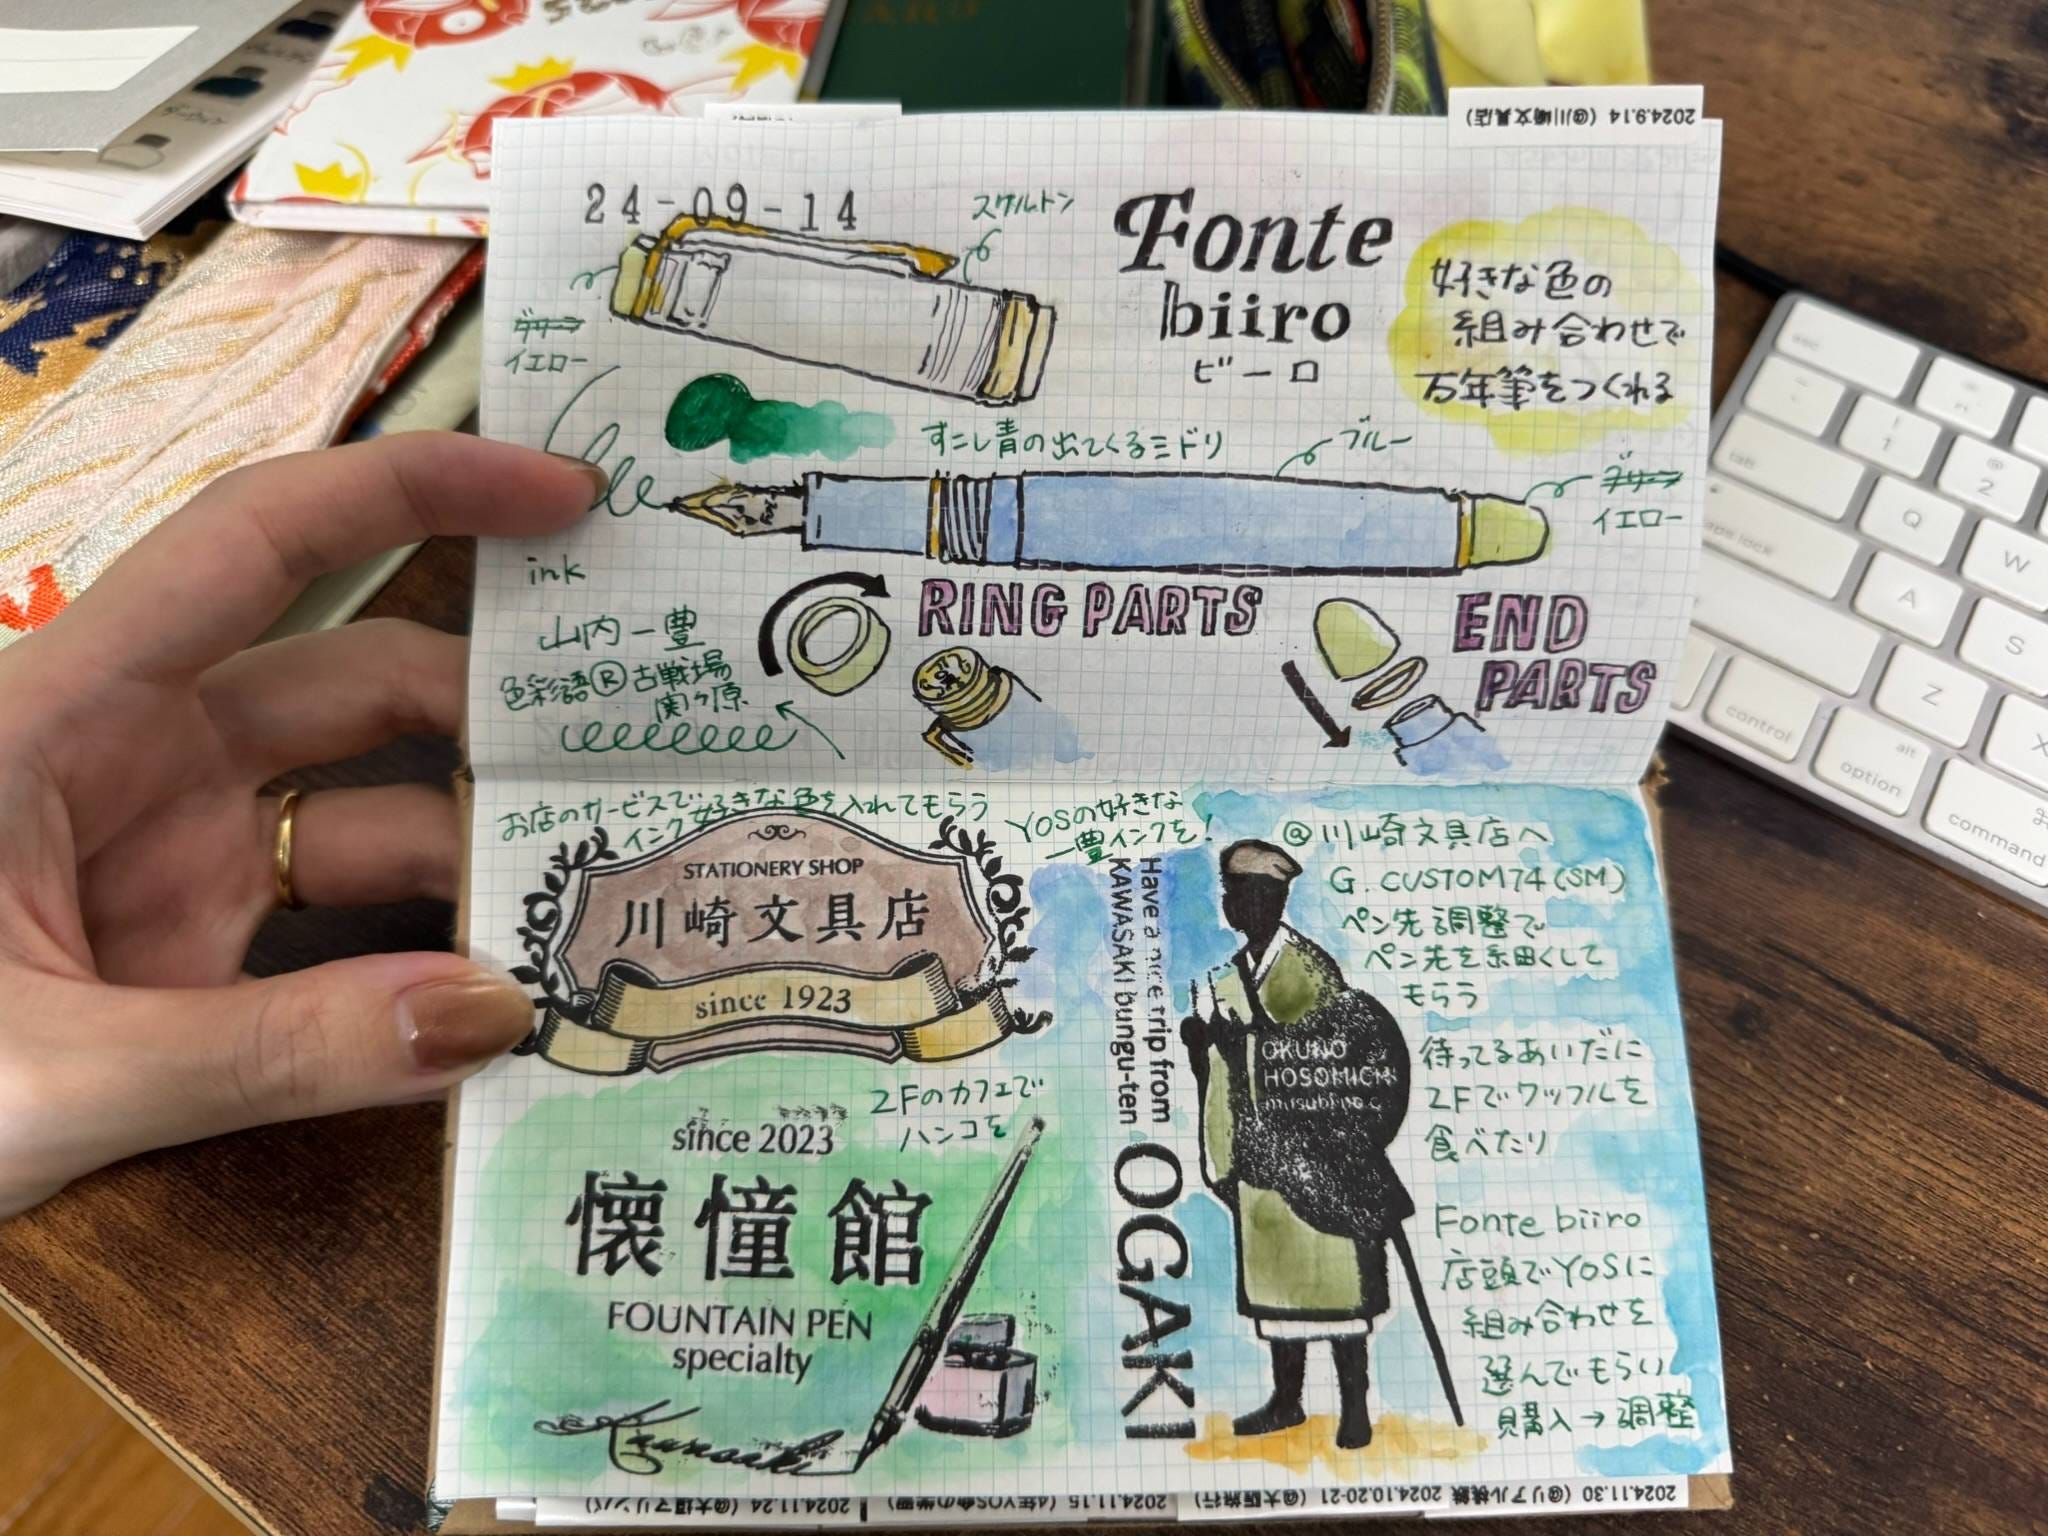 2024.9.14 (@川崎文具店)
24-09-14
スケルトン
Fonte
biiro
ビーロ
好きな色の
組み合わせで
万年筆をつくれる
グリーン
イエロー
すこし青の出てくるミドリ
ブルー
グリーン
イエロー
ink
山内一豊
色彩語®古戦場
関ヶ原
RING PARTS
END
PARTS
お店のサービスで好きな色を入れてもらう
インク
YOSの好きな
一豊インクを!
STATIONERY SHOP
川崎文具店
since 1923
2Fのカフェで
ハンコを
since 2023
懐憧館
FOUNTAIN PEN
specialty
Kawasaki
Have a nice trip from
KAWASAKI bungu-ten
OGAKI
OKUNO
HOSOMICHI
@川崎文具店へ
G. CUSTOM74(SM)
ペン先調整で
ペン先を細くして
もらう
待ってるあいだに
2Fでワッフルを
食べたり
Fonte biiro
店頭でYOSに
組み合わせを
選んでもらい
購入→調整
2024.11.24 (@大垣マリンバ)
2024.11.15 (4年YOS会の学習)
2024.10.20-21 (@大阪旅行)
2024.11.30 (@リアル桃鉄
esc
tab
caps lock
control
alt
option
command
!
1
@
2
Q
W
A
S
Z
X